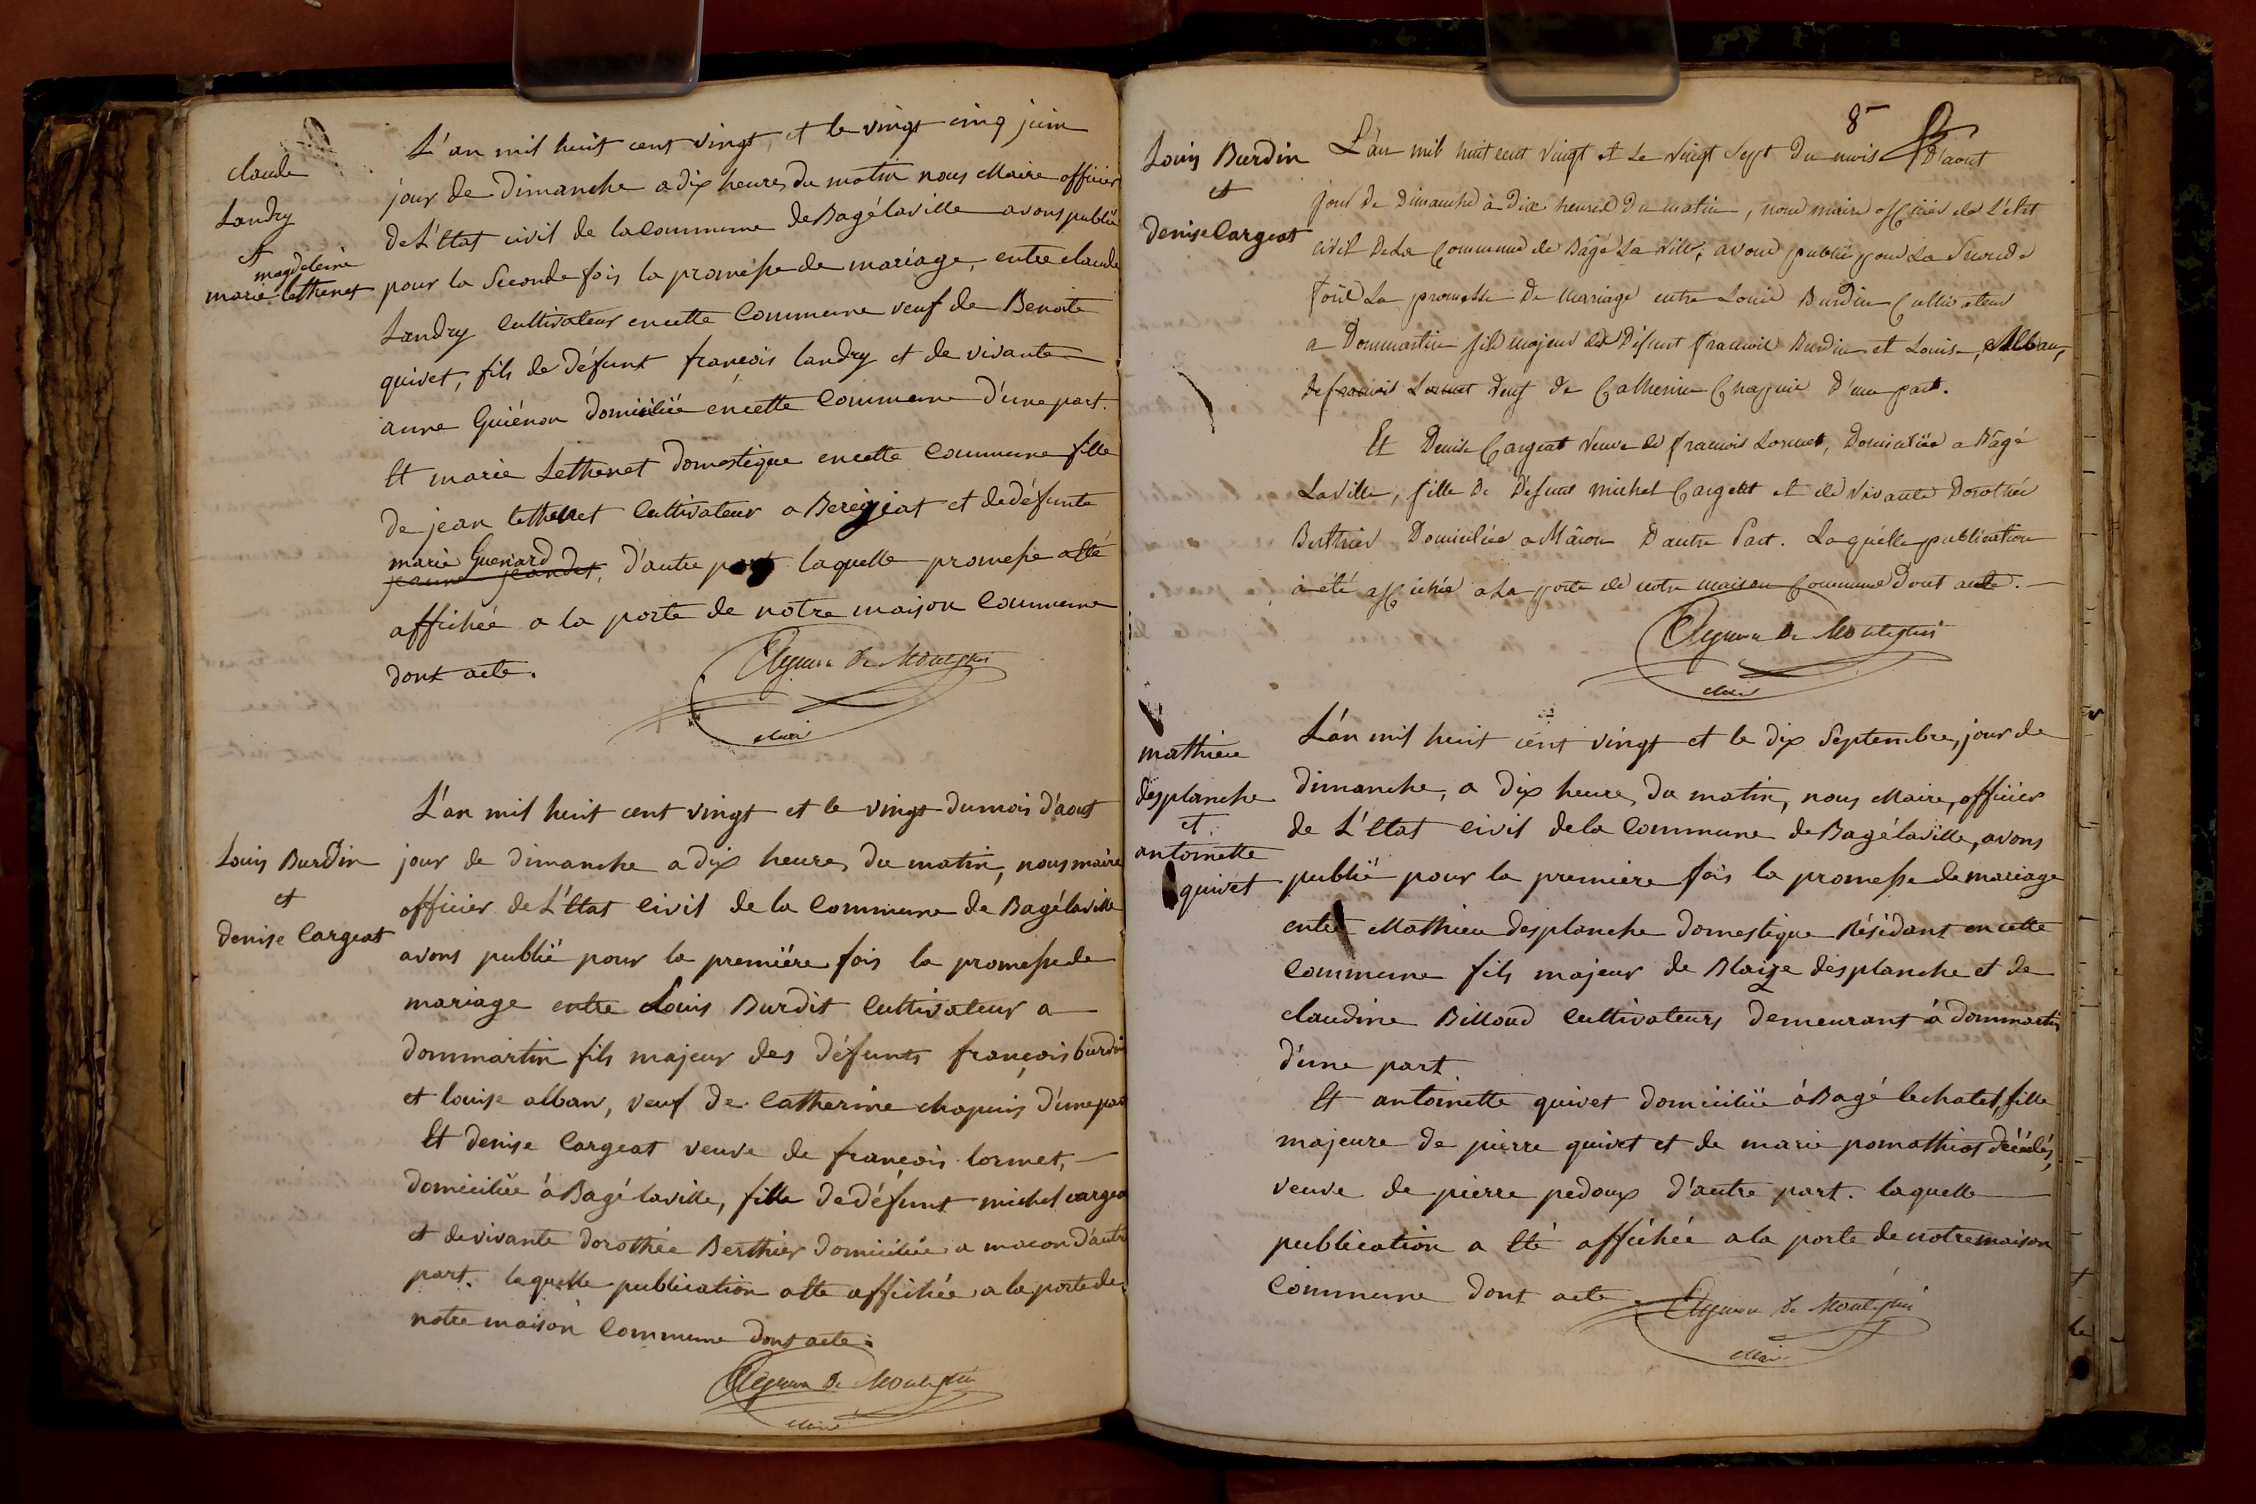 claude
Landry
et
magdeleine
marie lethenet
L'an mil huit cent vingt, et le vingt cinq juin
jour de Dimanche a dix heures du matin nous Maire officier
de L'Etat civil de la Commune de Bagélaville avons publié
pour la Seconde fois la promesse de mariage, entre claude
Landry Cultivateur en cette Commune veuf de Benoite
quivet, fils de défunt françois landry et de vivante
anne Guiénon domiciliée en cette Commune d'une part.
Et marie Lethenet domestique en cette Commune fille
de jean lethenet Cultivateur a Bereyziat et de défunte
marie Guenard
jeanne jeandet, d'autre part laquelle promesse a été
affichée a la porte de notre maison Commune
dont acte.
Maire
Louis Burdin
et
denise Cargeat
L'an mil huit cent vingt et le vingt du mois d'aout
jour de dimanche a dix heures du matin, nous maire
officier de L'Etat Civil de la Commune de Bagélaville
avons publié pour la première fois la promesse de
mariage entre Louis Burdit Cultivateur a
dommartin fils majeur des défunts françois burdin
et louise alban, veuf de Catherine chapuis d'une part
Et denise Cargeat veuve de françois lormet,
domiciliée à Bagé laville, fille de défunt michel cargeat
et de vivante dorothée Berthier domiciliée a macon d'autre
part. laquelle publication a été affichée a la porte de
notre maison Commune dont acte.
Maire
8
Louis Burdin
et
denise Cargeat
L'an mil huit cent vingt et le vingt sept du mois d'aout
jour de Dimanche à Dix heures du matin, nous maire officier de L'état
civil de La Commune de Bagé La ville, avons publié pour La Seconde
fois La promesse de mariage entre Louis Burdin Cultivateur
a Dommartin fils majeur de Défunt francois Burdin et Louise Alban,
de francois Lormet veuf de Catherine Chapuis D'une part.
Et Denise Cargeat veuve de francois Lormet, Domiciliée a Bagé
Laville, fille de Défunt michel Cargeat et de vivante Dorothée
Berthier Domiciliée a Mâcon D'autre Part. Laquelle publication
a été affichée a La porte de notre maison Commune dont acte.
Maire
mathieu
desplanche
et
antoinette
quivet
L'an mil huit cent vingt et le dix Septembre, jour de
dimanche, a dix heures du matin, nous Maire, officier
de L'Etat Civil de la Commune de Bagélaville, avons
publié pour la première fois la promesse de mariage
entre Mathieu desplanche domestique Résidant en cette
Commune fils majeur de Blaize desplanche et de
claudine Billoud Cultivateurs demeurant à dommartin
d'une part
Et antoinette quivet domiciliée à Bagé lechatel, fille
majeure de pierre quivet et de marie pomathiot décédés,
veuve de pierre pedoux d'autre part. laquelle
publication a été affichée a la porte de notre maison
Commune dont acte.
Maire